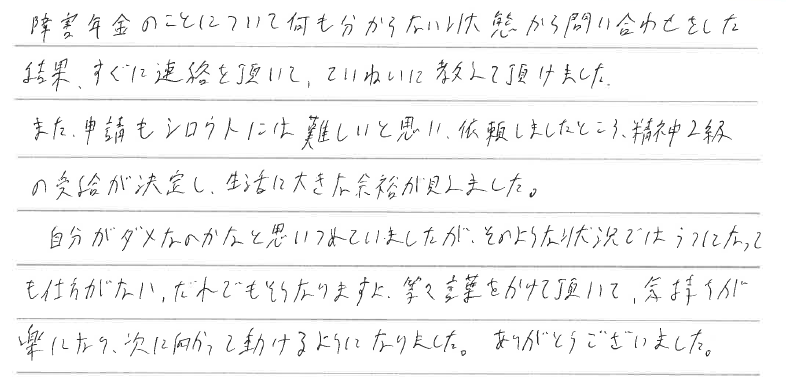 障害年金のことについて何も分からない状態から問い合わせをした
結果、すぐに連絡を頂いて、ていねいに教えて頂けました。
また、申請もシロウトには難しいと思い、依頼しましたところ、精神2級
の受給が決定し、生活に大きな余裕が見えました。
自分がダメなのかなと思いつめていましたが、そのような状況ではうつになって
も仕方がない、だれでもそうなりますよ、等々言葉をかけて頂いて、気持ちが
楽になり、次に向かって動けるようになりました。 ありがとうございました。